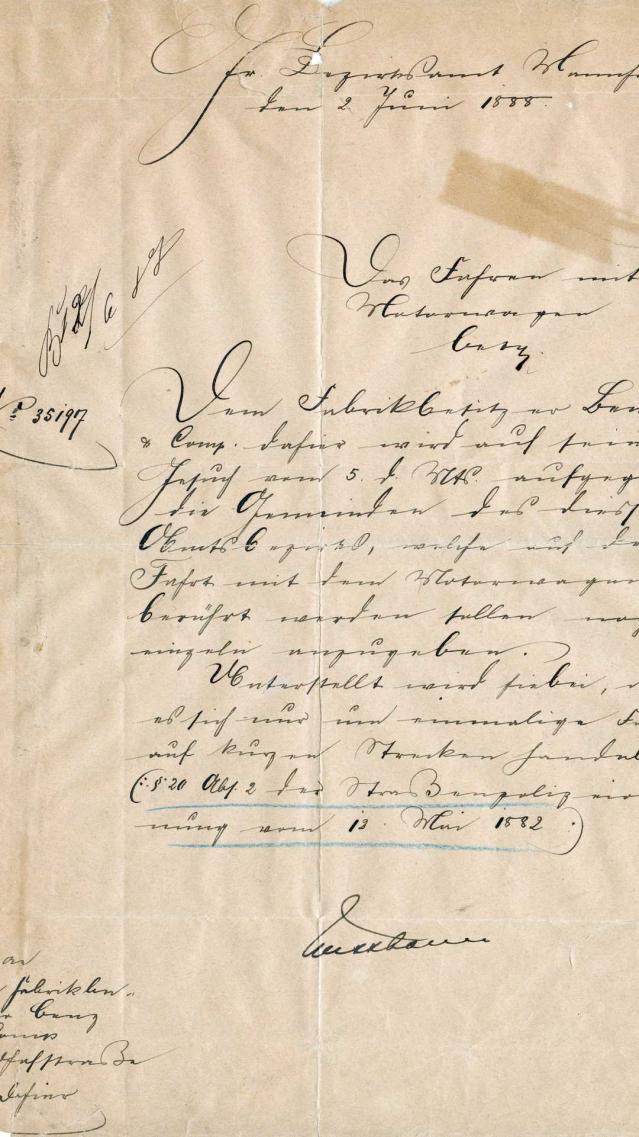 Gr. Bezirksamt Mannh
den 2. Juni 1888.
Das Fahren mit
Motorwagen
betr.
No 35197
Dem Fabrikbesitzer Ben
& Comp. dahier wird auf sein
Gesuch vom 5. d. Mts. aufgeg
die Gemeinden des dies
Amtsbezirks, welche auf de
Fahrt mit dem Motorwagen
berührt werden sollen no
einzeln anzugeben.
Unterstellt wird hiebei,
es sich nur um einmalige F
auf kurzen Strecken handel
(: § 20 Abs. 2 der Straßenpolizei
nung vom 12. Mai 1882 .)
an
Fabrikbe-
Benz
Comp
straße
dahier